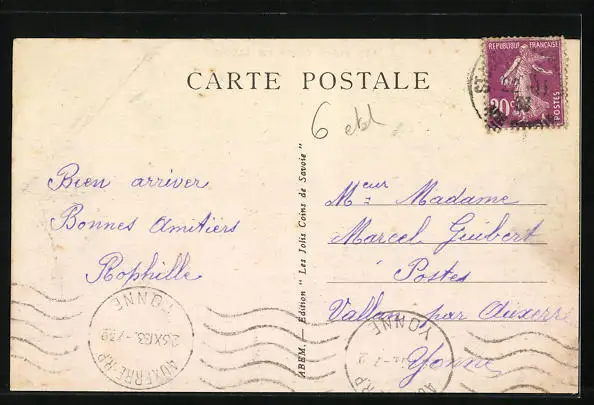 CARTE POSTALE
REPUBLIQUE FRANÇAISE
20c
POSTES
6
Bien arriver
Bonnes Amitiers
Rophille
ABEM. — Edition " Les Jolis Coins de Savoie "
Meur Madame
Marcel Guibert
Postes
Vallan par Auxerre
Yonne
YONNE
AUXERRE R.P
YONNE